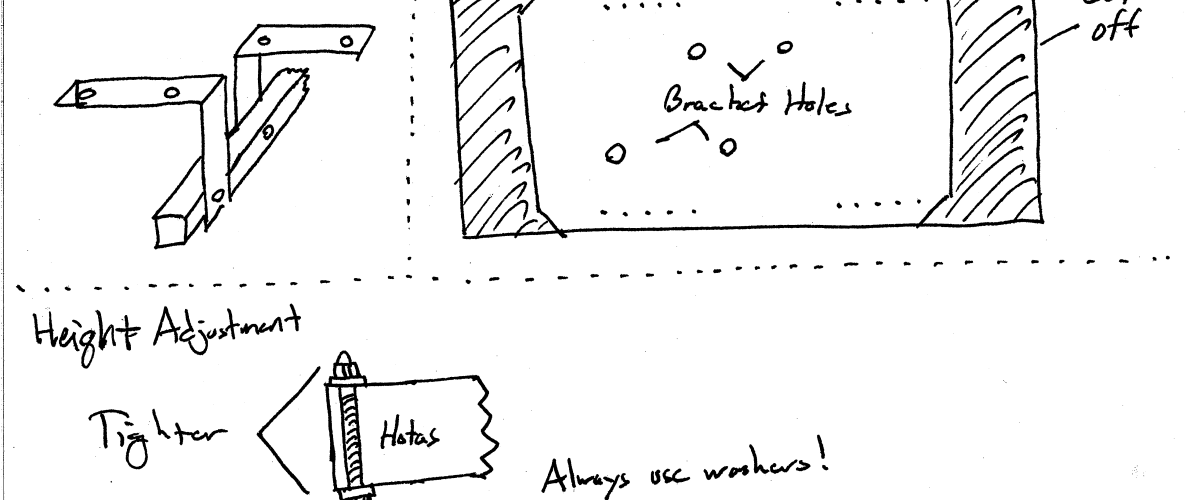 off
Bracket Holes
Height Adjustment
Tighter
Hotas
Always use washers!